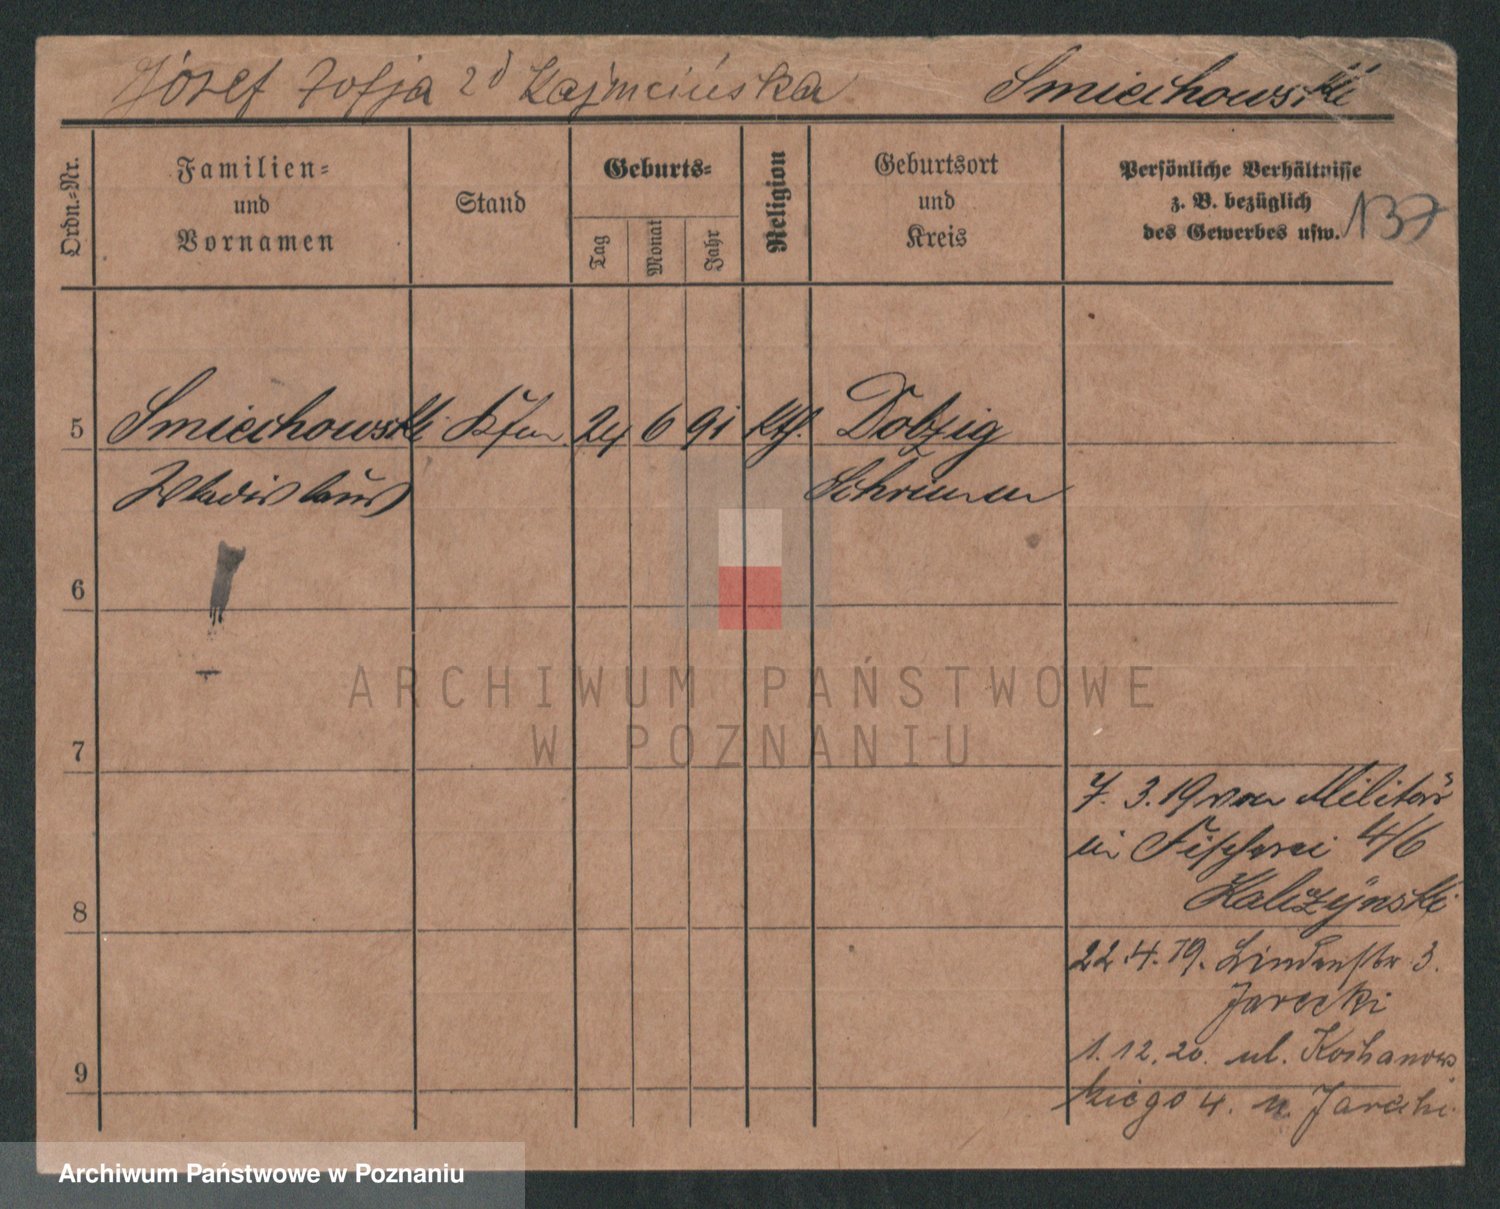 Józef Zofja 2d Kajmcińska Smiechowski
Ordn.-Nr.
Familien-
und
Vornamen
Stand
Geburts-
Tag
Monat
Jahr
Religion
Geburtsort
und
Kreis
Persönliche Verhältnisse
z. B. bezüglich
des Gewerbes usw.
137
5 Smiechowski Kfm 24 6 91 Kth. Dolzig
Wladislaus Schrimm
6
7
7. 3. 19 vom Militär
in Fischerei 4/6
Kalczynski
8
22.4.19. Lindenstr 3.
Jarecki
1. 12. 20. ul. Kochanows
9
kiego 4. u. Jarecki
ARCHIWUM PAŃSTWOWE
W POZNANIU
Archiwum Państwowe w Poznaniu